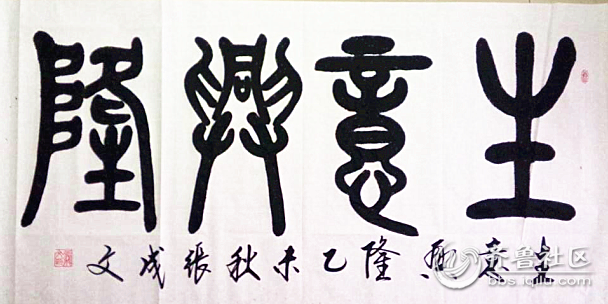 生意興隆
生意興隆乙未秋張成文
齐鲁社区
bbs.iqilu.com